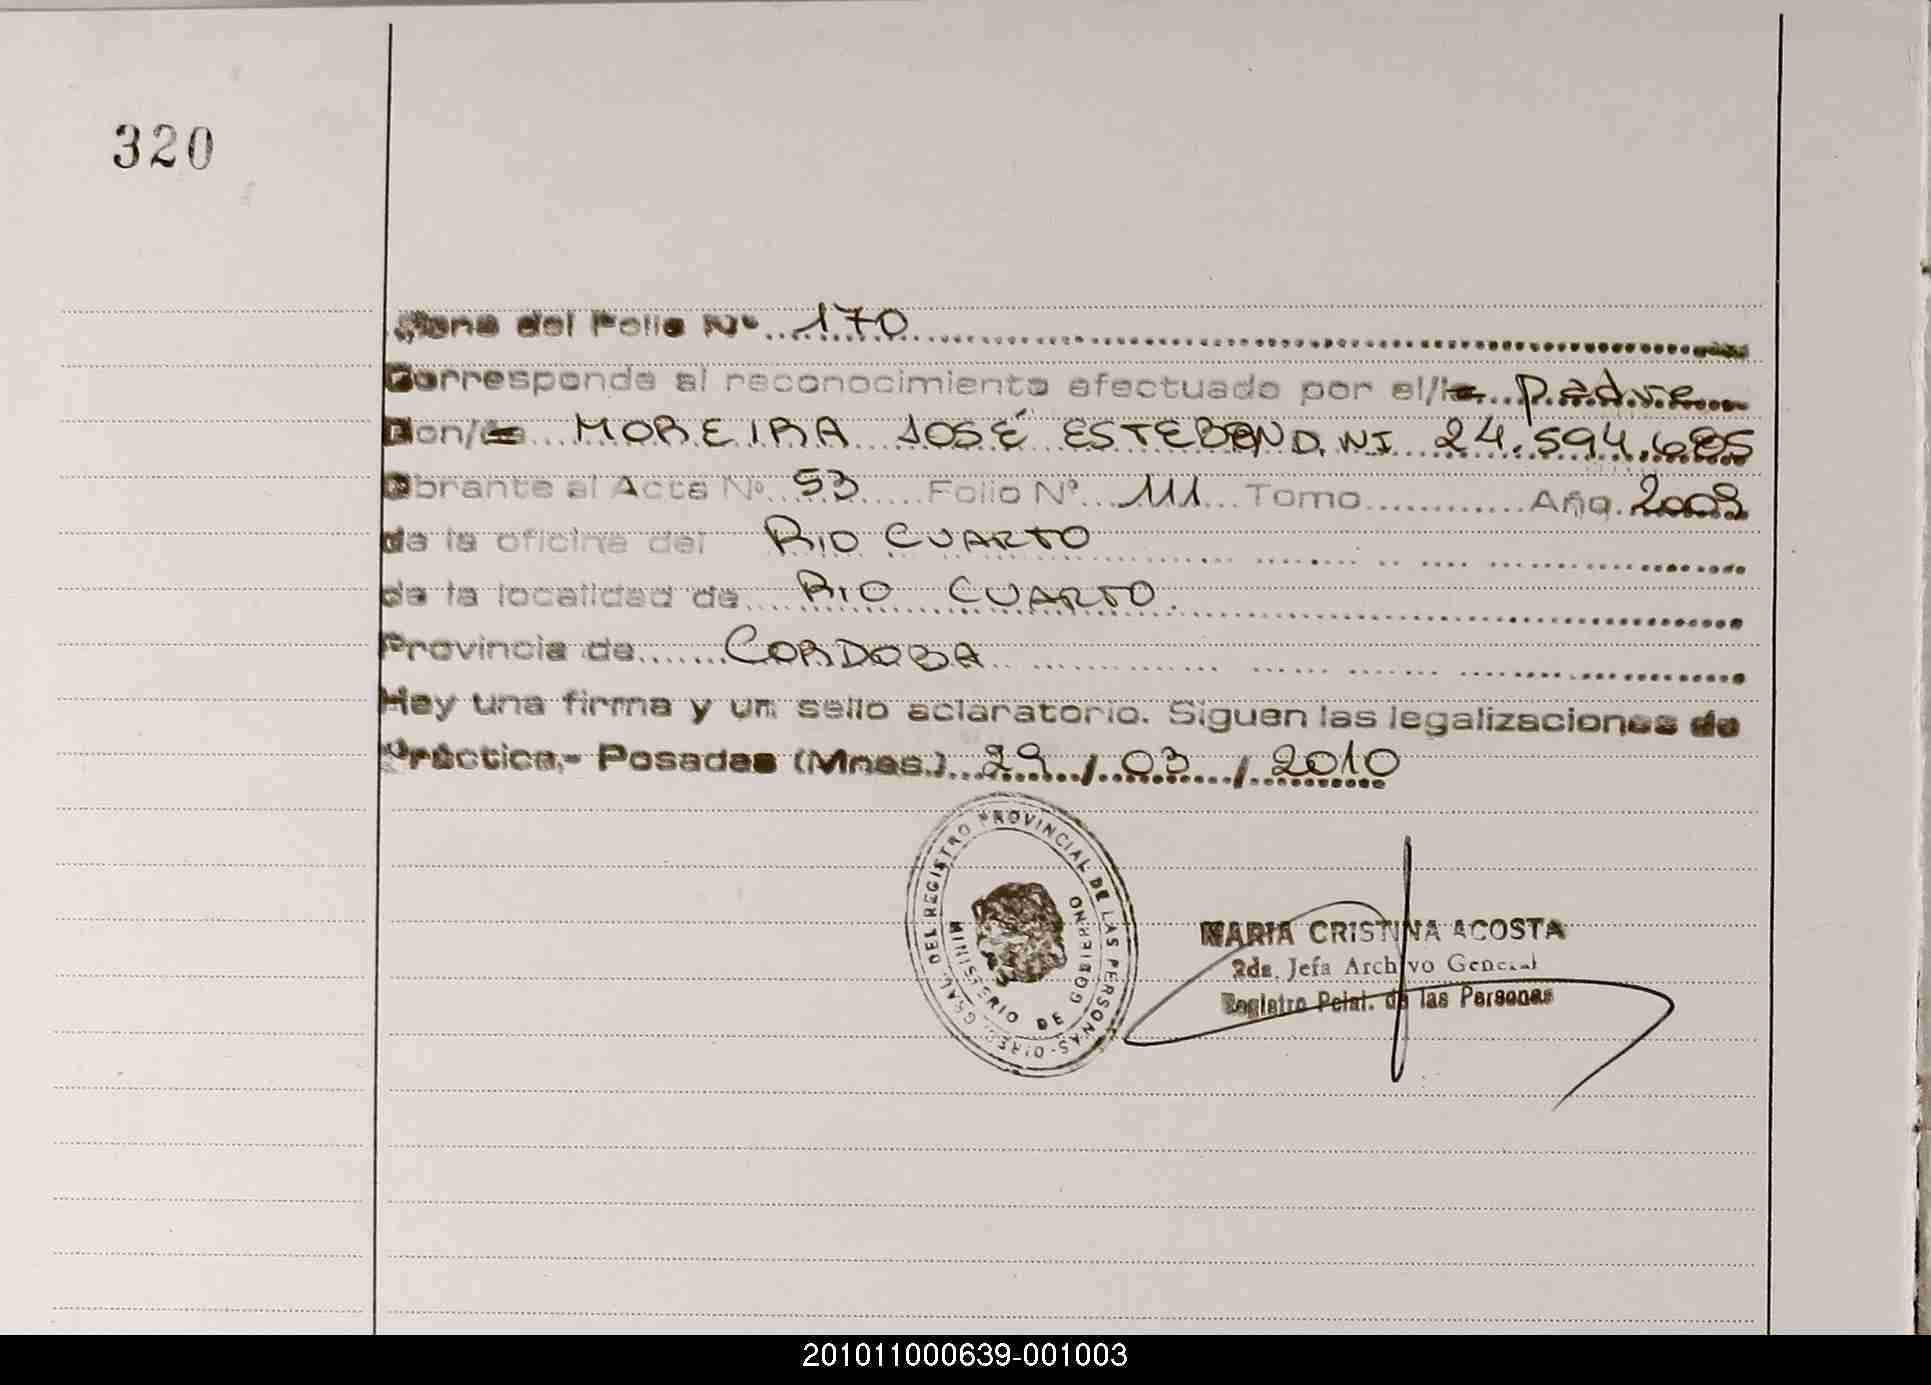 320
Viene del Folio Nº 170
Corresponde al reconocimiento efectuado por el/la padre
Don/ña MOREIRA JOSÉ ESTEBAN D.NI 24.594.685
Obrante al Acta Nº 53 Folio Nº 111 Tomo Año 2009
de la oficina del RIO CUARTO
de la localidad de RIO CUARTO.
Provincia de CORDOBA
Hay una firma y un sello aclaratorio. Siguen las legalizaciones de
Práctica.- Posadas (Mnes.) 29/03/2010
DIREC. GRAL. DEL REGISTRO PROVINCIAL DE LAS PERSONAS
MINISTERIO DE GOBIERNO
MARIA CRISTINA ACOSTA
2da. Jefa Archivo General
Registro Pcial. de las Personas
201011000639-001003